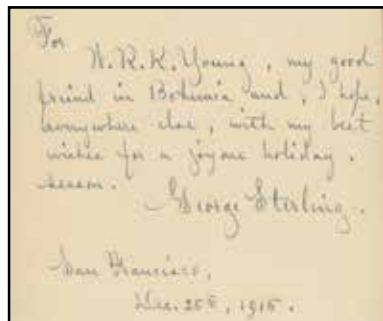 For
W. R. K. Young, my good
friend in Bohemia and, I hope,
anywhere else, with my best
wishes for a joyous holiday
season.
George Sterling.
San Francisco,
Dec. 25th, 1915.